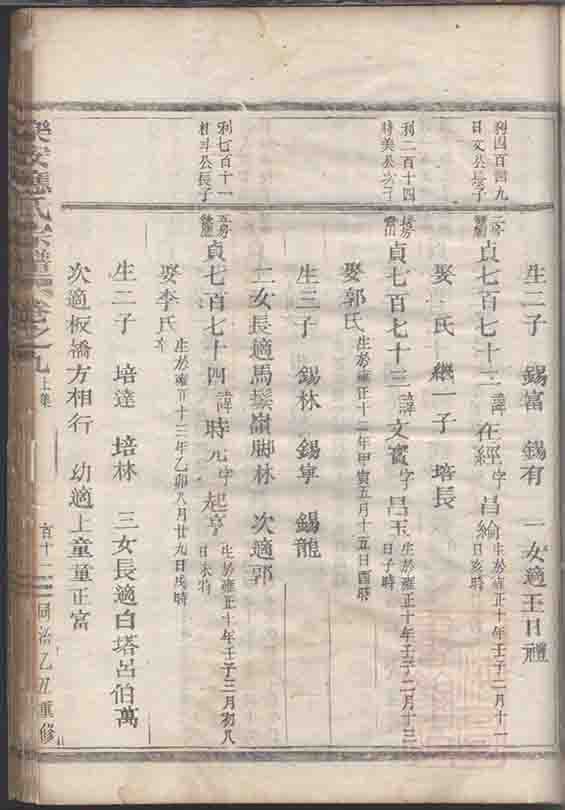 生二子 錫富 錫有 一女適王日禮
利四百四九
日文公長子
貞七百七十二 諱在經字昌綸 生於雍正十年壬子二月十一
日亥時
娶 氏 繼一子 培長
利二百十四
貞七百七十三 諱文賓字昌玉 生於雍正十年壬子二月十三
日子時
娶郭氏 生於雍正十二年甲寅五月十五日酉時
生三子 錫林 錫寧 錫龍
二女長適馬鬃嶺脚林 次適郭
利七百十一
公長子
貞七百七十四 諱時元字起亨 生於雍正十年壬子三月初八
日未時
娶李氏 生於雍正十三年乙卯八月廿九日戌時
生二子 培達 培林 三女長適白塔呂伯萬
次適板橋方相行 幼適上童童正富
樂安應氏宗譜 卷之九 上集 百十一 同治乙丑重修